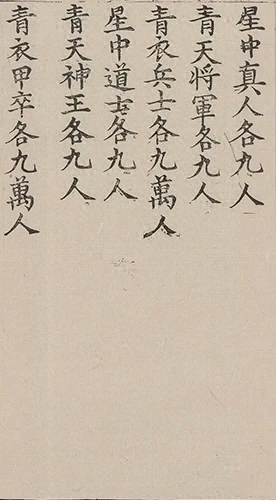 星中真人各九人
青天将軍各九人
青衣兵士各九萬人
星中道士各九人
青天神王各九人
青衣甲卒各九萬人